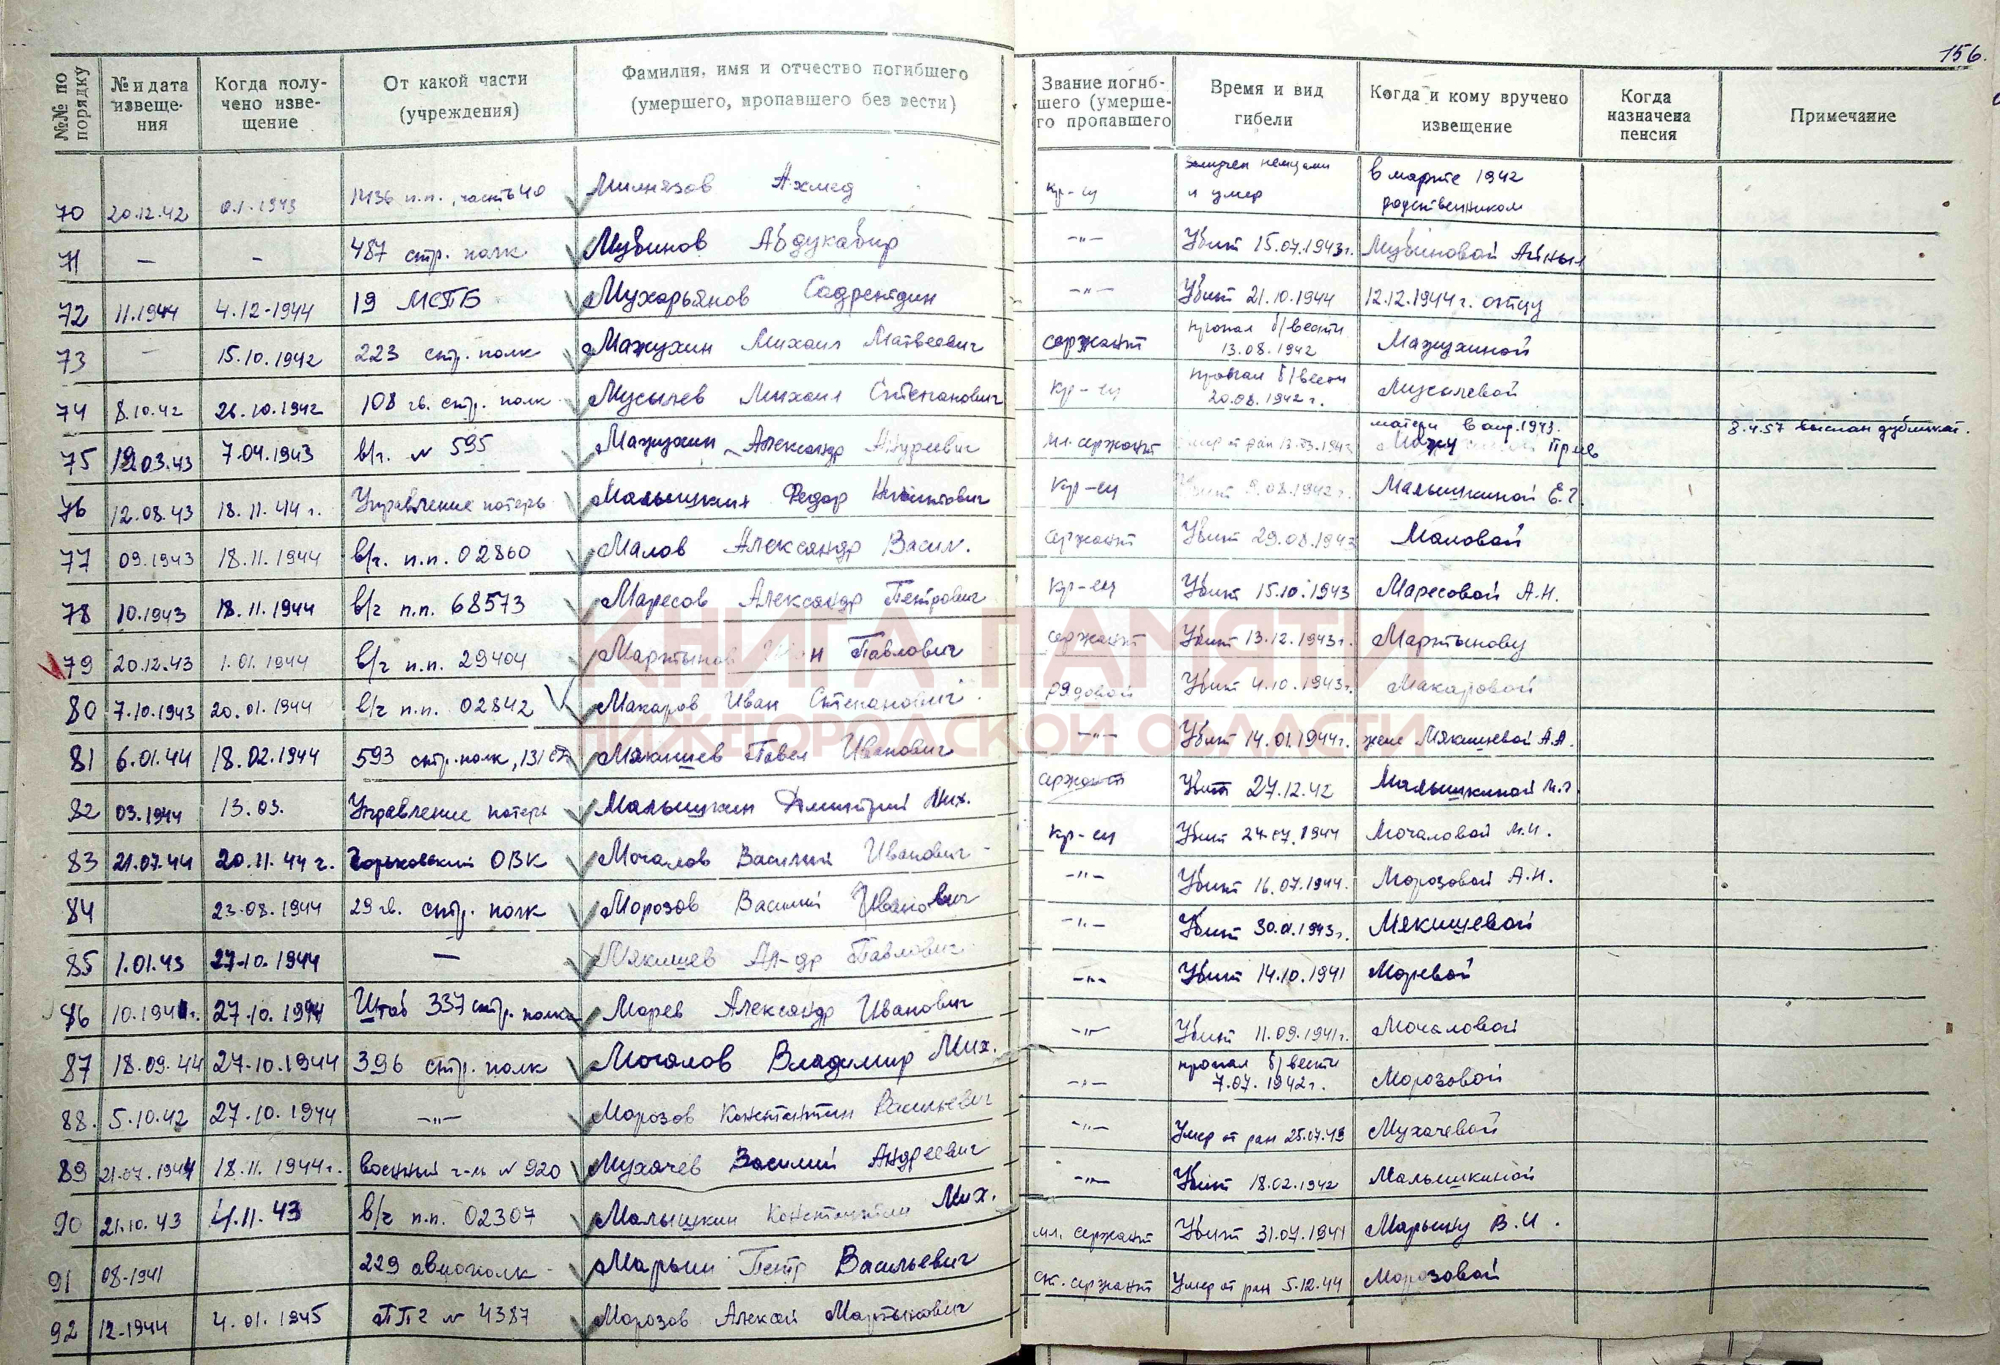 156.
№№ по порядку | № и дата извещения | Когда получено извещение | От какой части (учреждения) | Фамилия, имя и отчество погибшего (умершего, пропавшего без вести) | Звание погибшего (умершего пропавшего | Время и вид гибели | Когда и кому вручено извещение | Когда назначена пенсия | Примечание
70 20.12.42 1.1.1943 1436 п.п., часть 40 Милнязов Ахмед кр-ец немцами и умер в марте 1942 родственником
71 — — 487 стр. полк Мубинов Абдукабир —"— Убит 15.07.1943г. Мубиновой
72 11.1944 4.12-1944 19 МСПБ Мухарьянов Садрентдин —"— Убит 21.10.1944 12.12.1944 г. отцу
73 — 15.10.1942 223 стр. полк Мажухин Михаил Матвеевич сержант пропал б/вести 13.08.1942 Мажухиной
74 8.10.42 26.10.1942 108 гв. стр. полк Мусылев Михаил Степанович кр-ец пропал б/вести 20.08.1942г. Мусылевой
75 19.03.43 7.04.1943 в/ч. № 595 Мажухин Александр Андреевич мл. сержант умер от ран матери в апр. 1943. 8.4.57 выслан дубликат.
76 12.08.43 18.11.44 г. Управление потерь Малышкин Федор Никитович кр-ец Убит 9.08.1942г. Малышкиной Е.
77 09.1943 18.11.1944 в/ч. п.п. 02860 Малов Александр Васил. сержант Убит 29.08.1943 Маловой
78 10.1943 18.11.1944 в/ч п.п. 68573 Маресов Александр Петрович кр-ец Убит 15.10.1943 Маресовой А.Н.
79 20.12.43 1.01.1944 в/ч п.п. 29404 Мартынов Павлович сержант Убит 13.12.1943г. Мартынову
80 7.10.1943 20.01.1944 в/ч п.п. 02842 Макаров Иван Степанович рядовой Убит 4.10.1943г. Макаровой
81 6.01.44 18.02.1944 593 стр. полк, 131 Мякишев Павел Иванович —"— Убит 14.01.1944г. жене Мякишевой А.А.
82 03.1944 13.03. Управление потерь Малышкин Дмитрий Мих. сержант Убит 27.12.42 Малышкиной
83 21.07.44 20.11.44 г. Горьковский ОВК Мочалов Василий Иванович кр-ец Убит 24.07.1944 Мочаловой М.И.
84 23.08.1944 29 гв. стр. полк Морозов Василий Иванович —"— Убит 16.07.1944. Морозовой А.Н.
85 1.01.43 27.10.1944 — Мякишев Ал-др Павлович —"— Убит Мякишевой
86 27.10.1944 Штаб 337 стр. полка Морев Александр Иванович —"— Убит 14.10.1941 Моревой
87 18.09.44 27.10.1944 396 стр. полк Мочалов Владимир Мих. —"— Убит 11.09.1941г. Мочаловой
88. 5.10.42 27.10.1944 —"— Морозов Константин Васильевич —"— пропал б/вести 7.07.1942г. Морозовой
89 21.07.1944 18.11.1944г. военный г-ль № 920 Мухачев Василий Андреевич —"— Умер от ран 25.07.43 Мухачевой
90 21.10.43 4.11.43 в/ч п.п. 02307 Малышкин Константин Мих. —"— Убит 18.02.1942 Малышкиной
91 08-1941 229 авиополк Марьин Петр Васильевич мл. сержант Убит 31.07.1941 Марьину В.И.
92 12-1944 4.01.1945 ППГ № 4387 Морозов Алексей Мартынович ст. сержант Умер от ран 5.12.44 Морозовой
КНИГА ПАМЯТИ
НИЖЕГОРОДСКОЙ ОБЛАСТИ